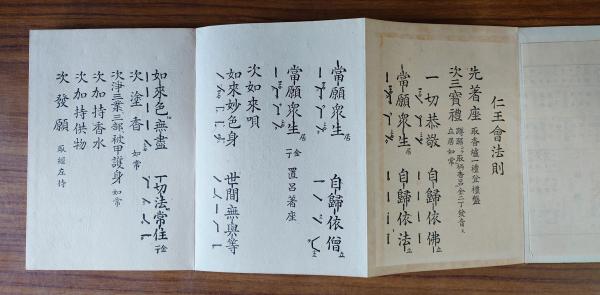 仁王會法則
先着座 取香爐一禮登禮盤
次三寶禮
立居如常
一切恭敬 自歸依佛立
當願衆生居 自歸依法立
當願衆生居 自歸依僧立
當願衆生居 金一 置呂著座
次如來唄
如來妙色身 世間無與等
如來色無盡 一切法常住金一
次塗香 如常
次淨三業三部被甲護身 如常
次加持香水
次加持供物
次發願 取㷡左持